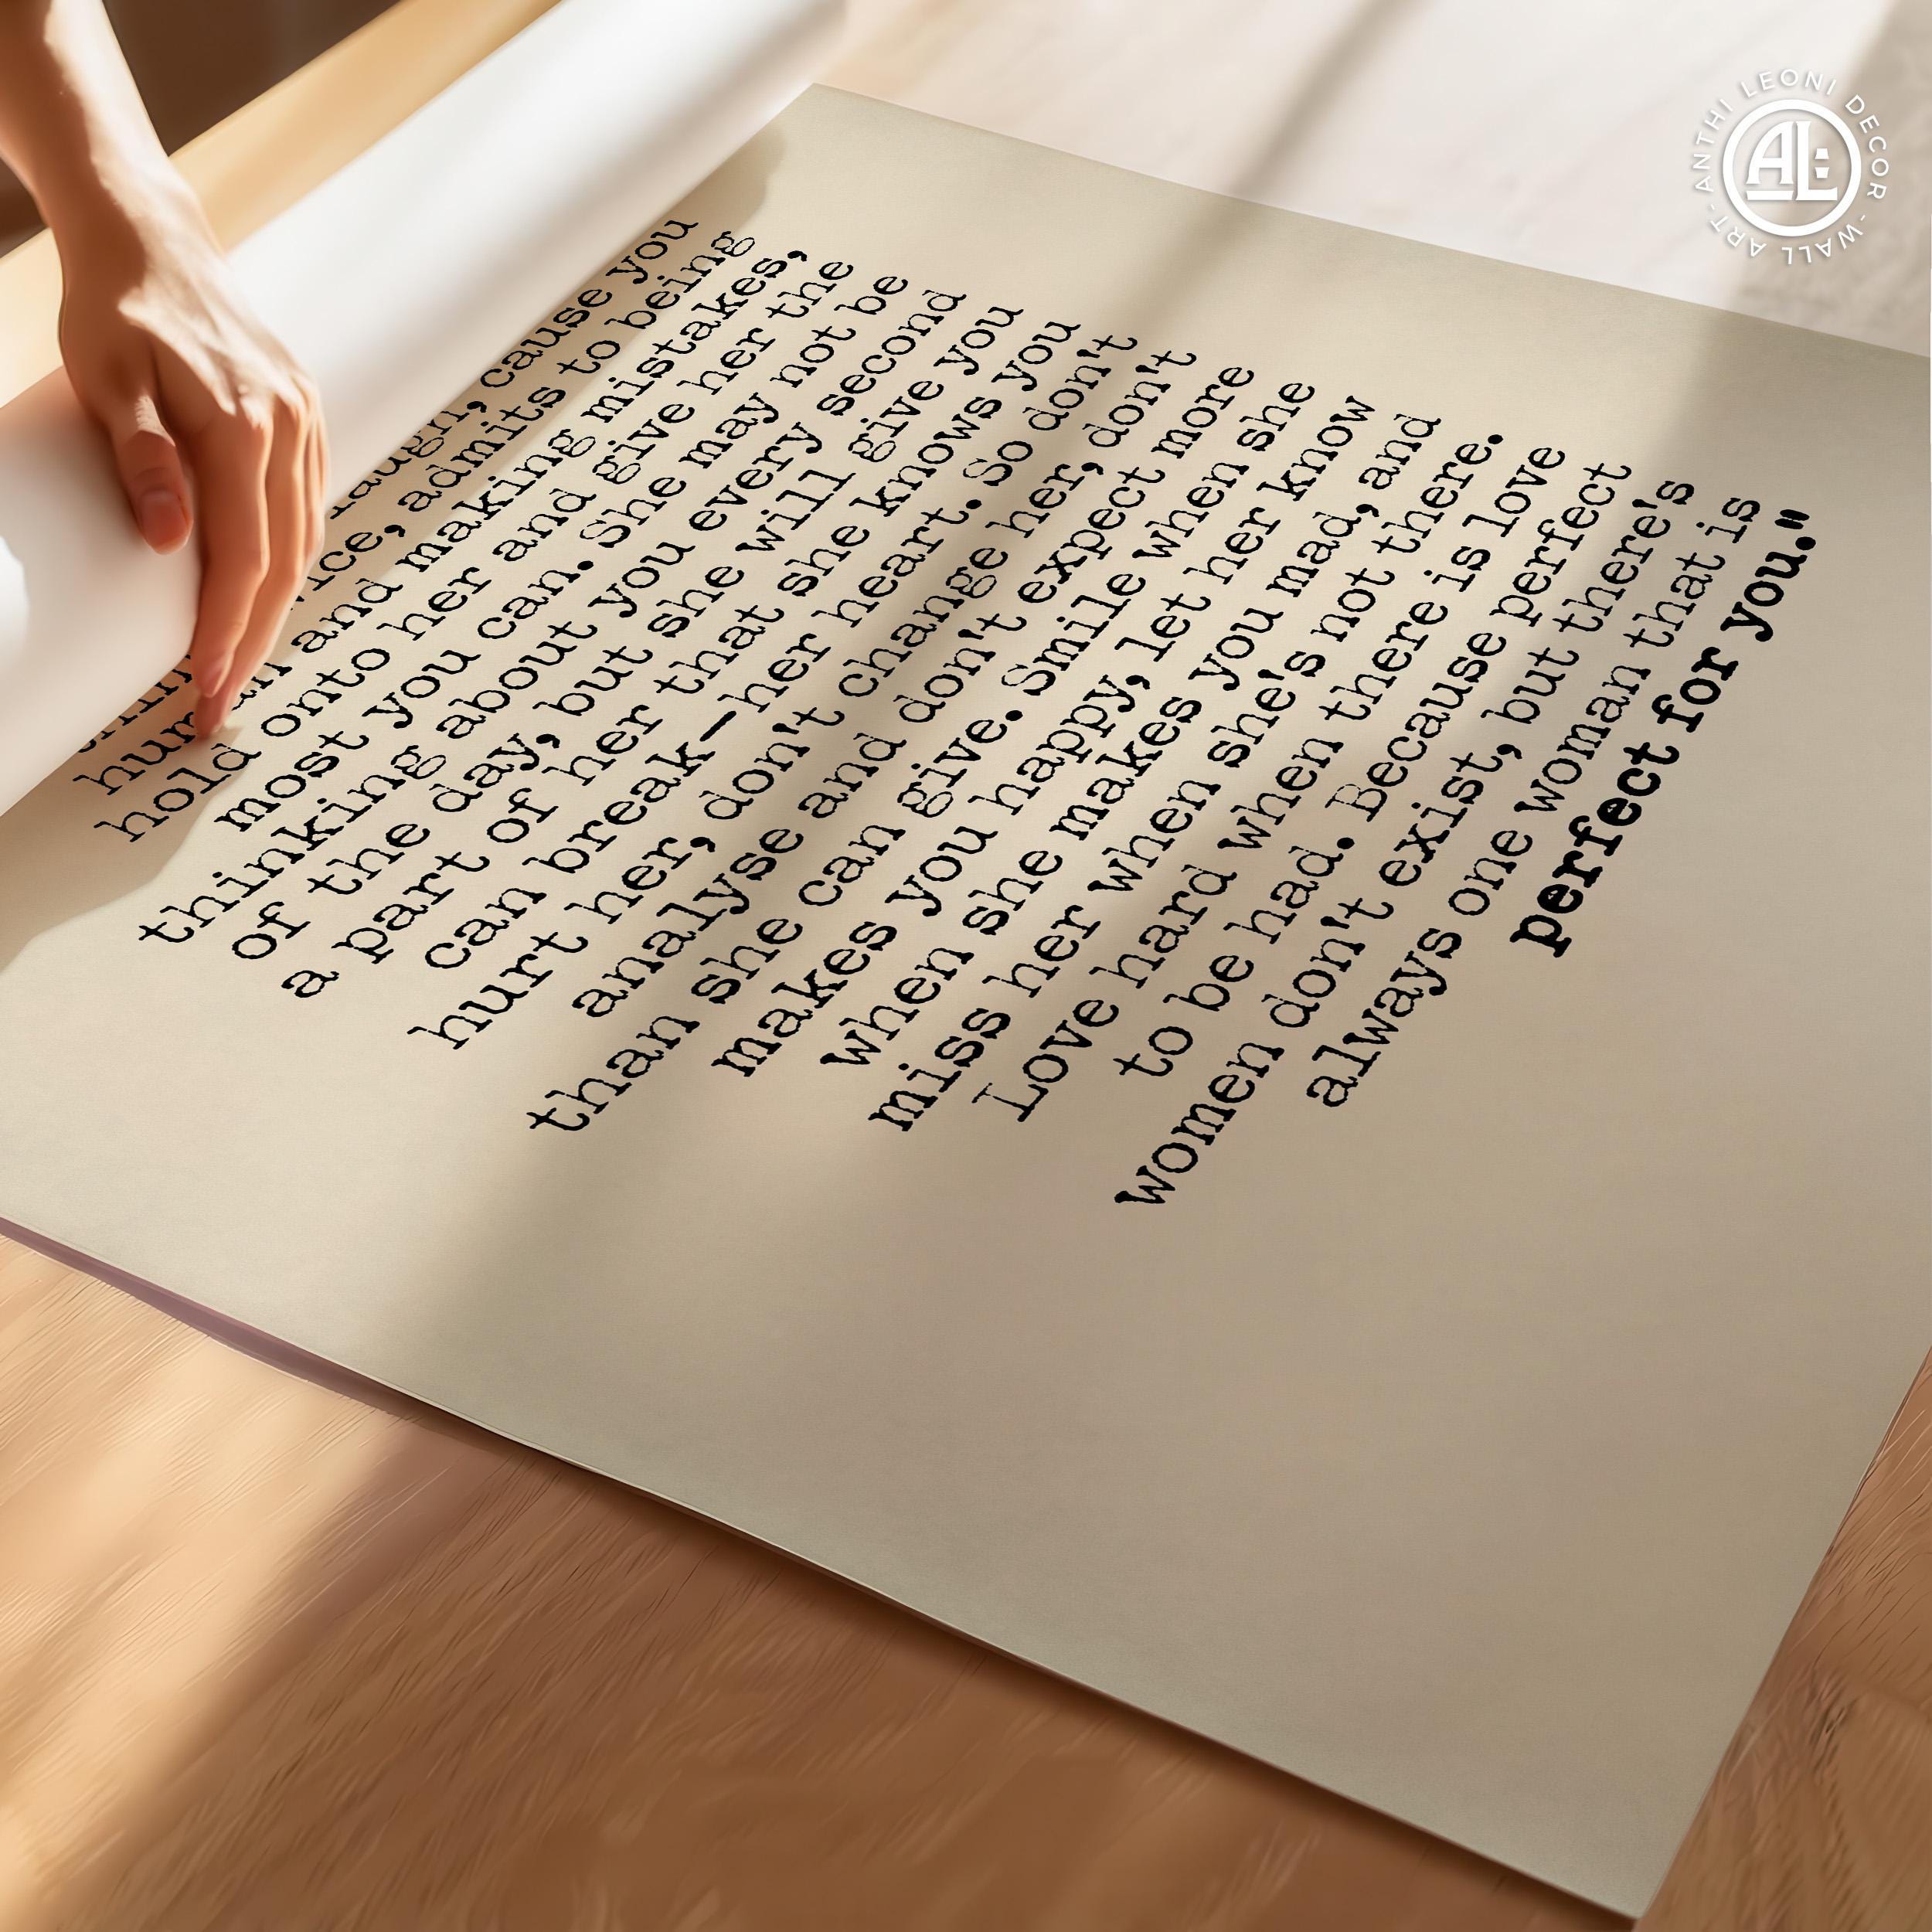 laugh, cause you
twice, admits to being
human and making mistakes,
hold onto her and give her the
most you can. She may not be
thinking about you every second
of the day, but she will give you
a part of her that she knows you
can break—her heart. So don't
hurt her, don't change her, don't
analyse and don't expect more
than she can give. Smile when she
makes you happy, let her know
when she makes you mad, and
miss her when she's not there.
Love hard when there is love
to be had. Because perfect
women don't exist, but there's
always one woman that is
perfect for you."
ANTHI LEONI DECOR - WALL ART -
AL